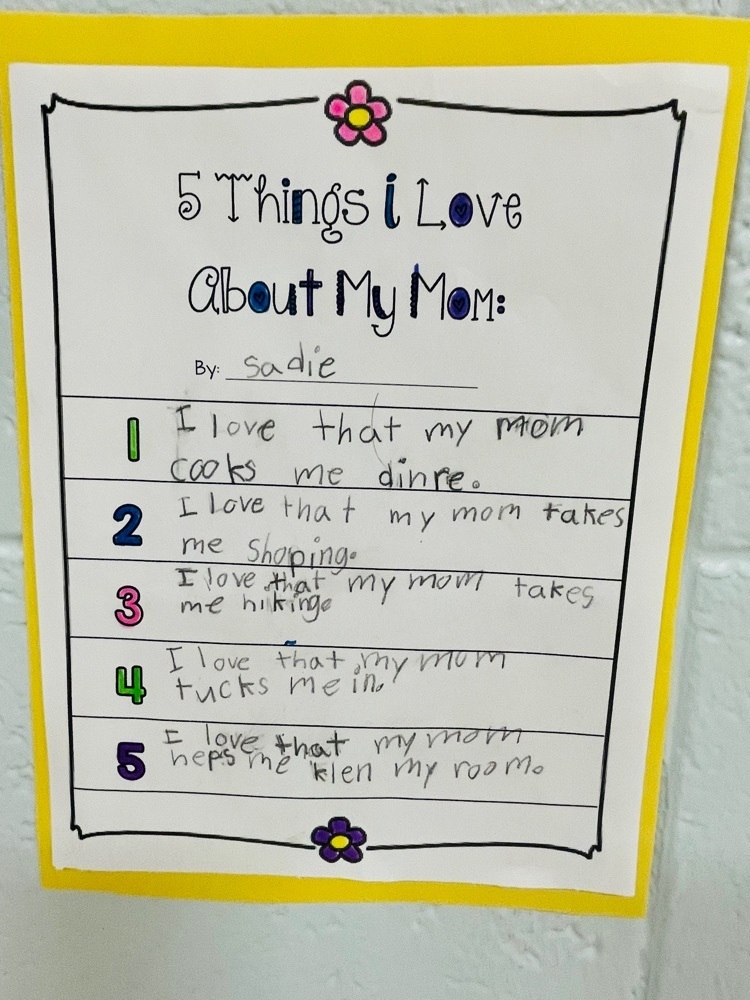 5 Things i Love
About My Mom:
By: sadie
1 I love that my mom
cooks me dinre.
2 I love that my mom takes
me shoping.
3 I love that my mom takes
me hiking.
4 I love that my mom
tucks me in.
5 I love that my mom
heps me klen my room.